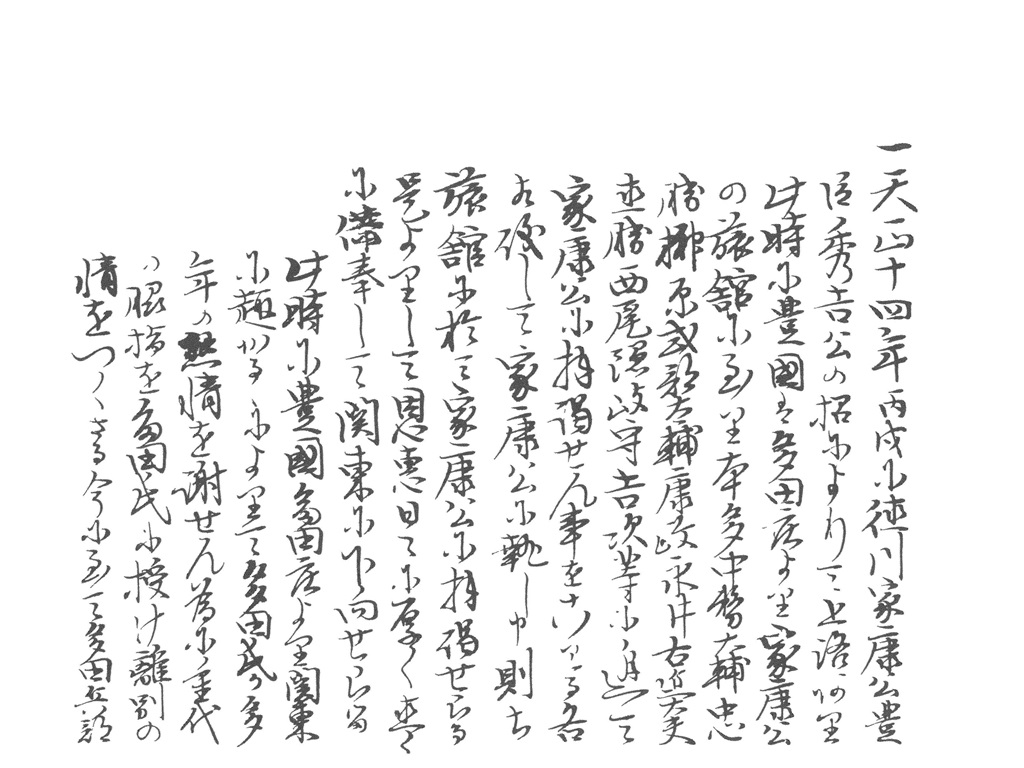 一天正十四年丙戌ニ徳川家康公豊
臣秀吉公の招ニよりて上洛あり
此時ニ豊國ハ多田庄より家康公
の旅舘ニ至り本多中務大輔忠
勝榊原式部大輔康政永井右近大夫
直勝西尾隠岐守吉次等ニ逢て
家康公ニ拝謁せん事をこハる各
して家康公ニ執し申則ち
旅舘ニ於て家康公ニ拝謁せらる
是よりして恩恵日々ニ厚く遂
ニ供奉して関東ニ下向せらる
此時ニ豊國多田庄より関東
ニ趣かるゝニより て多田氏か多
年の懇情を謝せん為ニ重代
の脇指を多田氏ニ授け離別の
情をつくさる今ニ至て多田